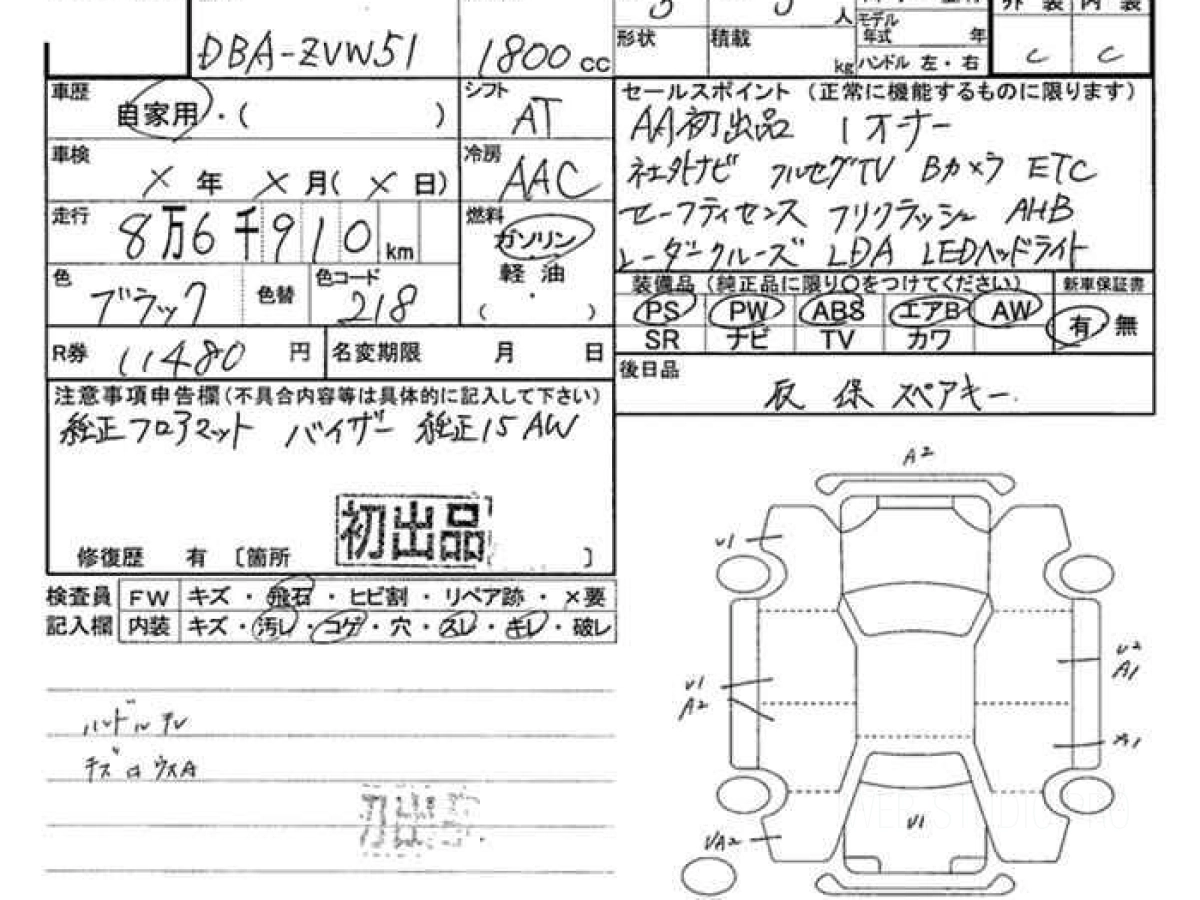 DBA-ZVW51
1800 cc
人
モデル
年式 年
外装 内装
形状 積載
kg ハンドル 左・右
C C
車歴
自家用・( )
シフト
AT
車検
× 年 × 月( × 日)
冷房
AAC
走行
8万6千910 km
燃料
ガソリン
軽油
・
( )
色
ブラック
色替
色コード
218
R券 11480 円
名変期限 月 日
セールスポイント (正常に機能するものに限ります)
AA初出品 1オナー
社外ナビ フルセグTV Bカメラ ETC
セーフティセンス プリクラッシュ AHB
レーダークルーズ LDA LEDヘッドライト
装備品 (純正品に限り〇をつけてください)
新車保証書
PS PW ABS エアB AW
SR ナビ TV カワ
有・無
後日品
取 保 スペアキー
注意事項申告欄(不具合内容等は具体的に記入して下さい)
純正フロアマット バイザー 純正15AW
初出品
修復歴 有 〔箇所 〕
検査員
記入欄
FW キズ・飛石・ヒビ割・リペア跡・×要
内装 キズ・汚レ・コゲ・穴・スレ・キレ・破レ
ハンドルスレ
A2
U1
U1
A2
U2
A1
A1
U1
UA2